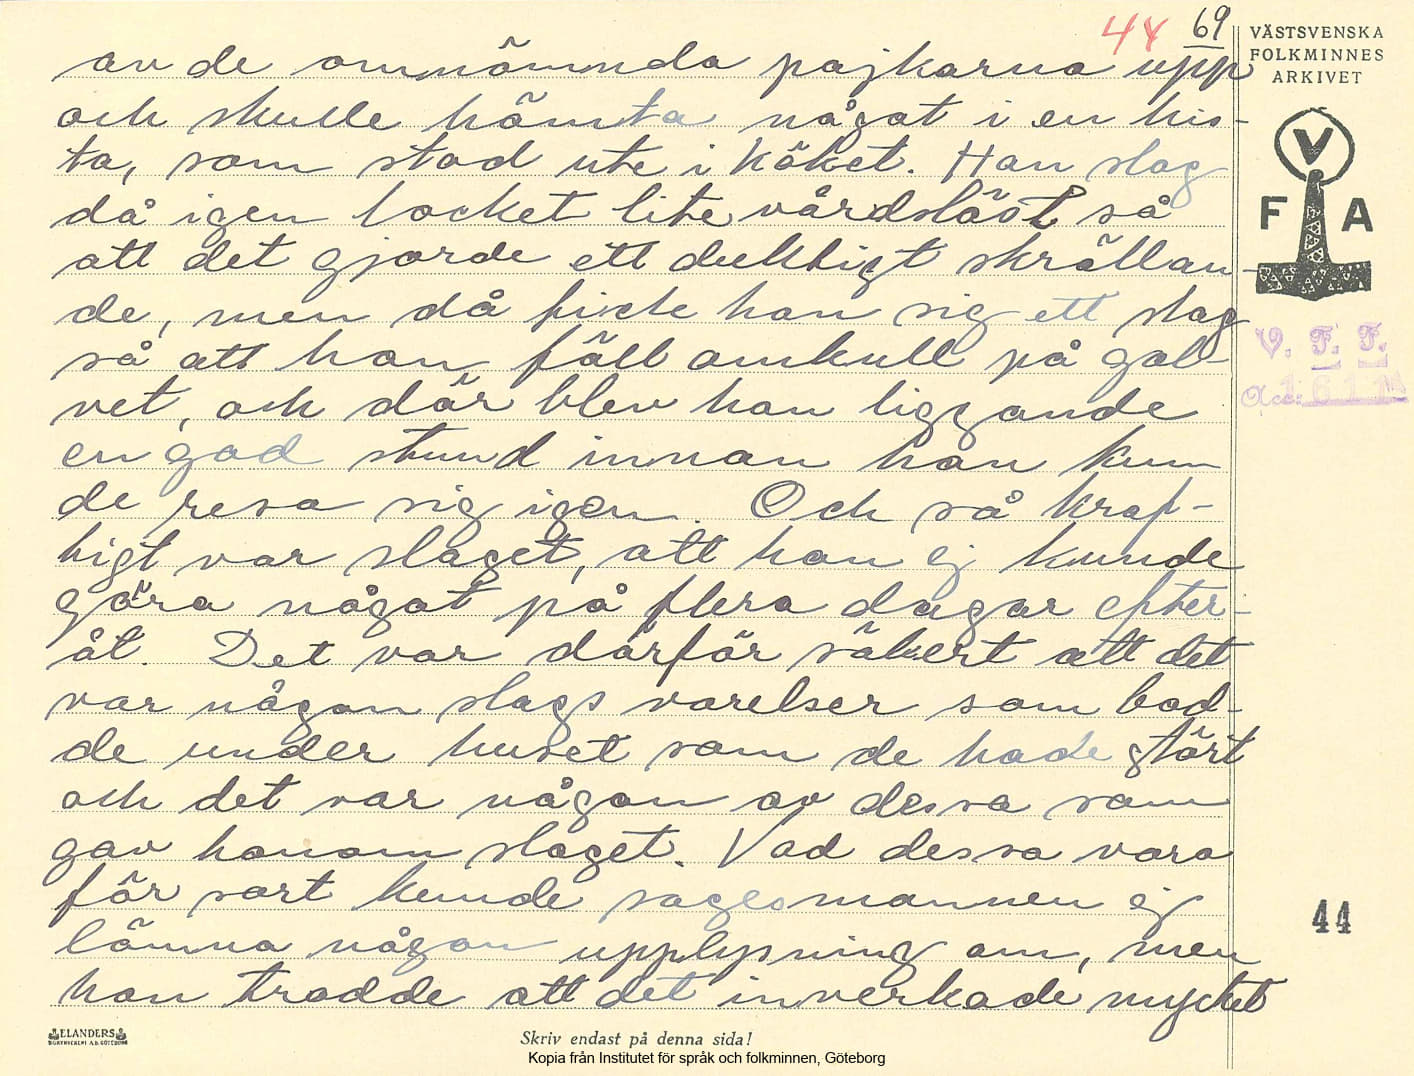 44 69
VÄSTSVENSKA
FOLKMINNES
ARKIVET
av de omnämnda pojkarna upp
och skulle hämta något i en kis-
ta, som stod ute i köket. Han slog
då igen locket lite vårdslöst så
att det gjorde ett duktigt skrällan-
de, men då fick han sig ett slag
så att han föll omkull på gol-
vet, och där blev han liggande
en god stund innan han kun
de resa sig igen. Och så kraf-
tigt var slaget, att han ej kunde
göra något på flera dagar efter-
åt. Det var därför säkert att det
var någon slags varelser som bod-
de under huset som de hade stört
och det var någon av dessa som
gav honom slaget. Vad dessa voro
för sort kunde sagesmannen ej
lämna någon upplysning om, men
han trodde att det inverkade mycket
V
F A
V. F. F.
Acc: 1611
44
ELANDERS
BOKTRYCKERI A.B. GÖTEBORG
Skriv endast på denna sida!
Kopia från Institutet för språk och folkminnen, Göteborg